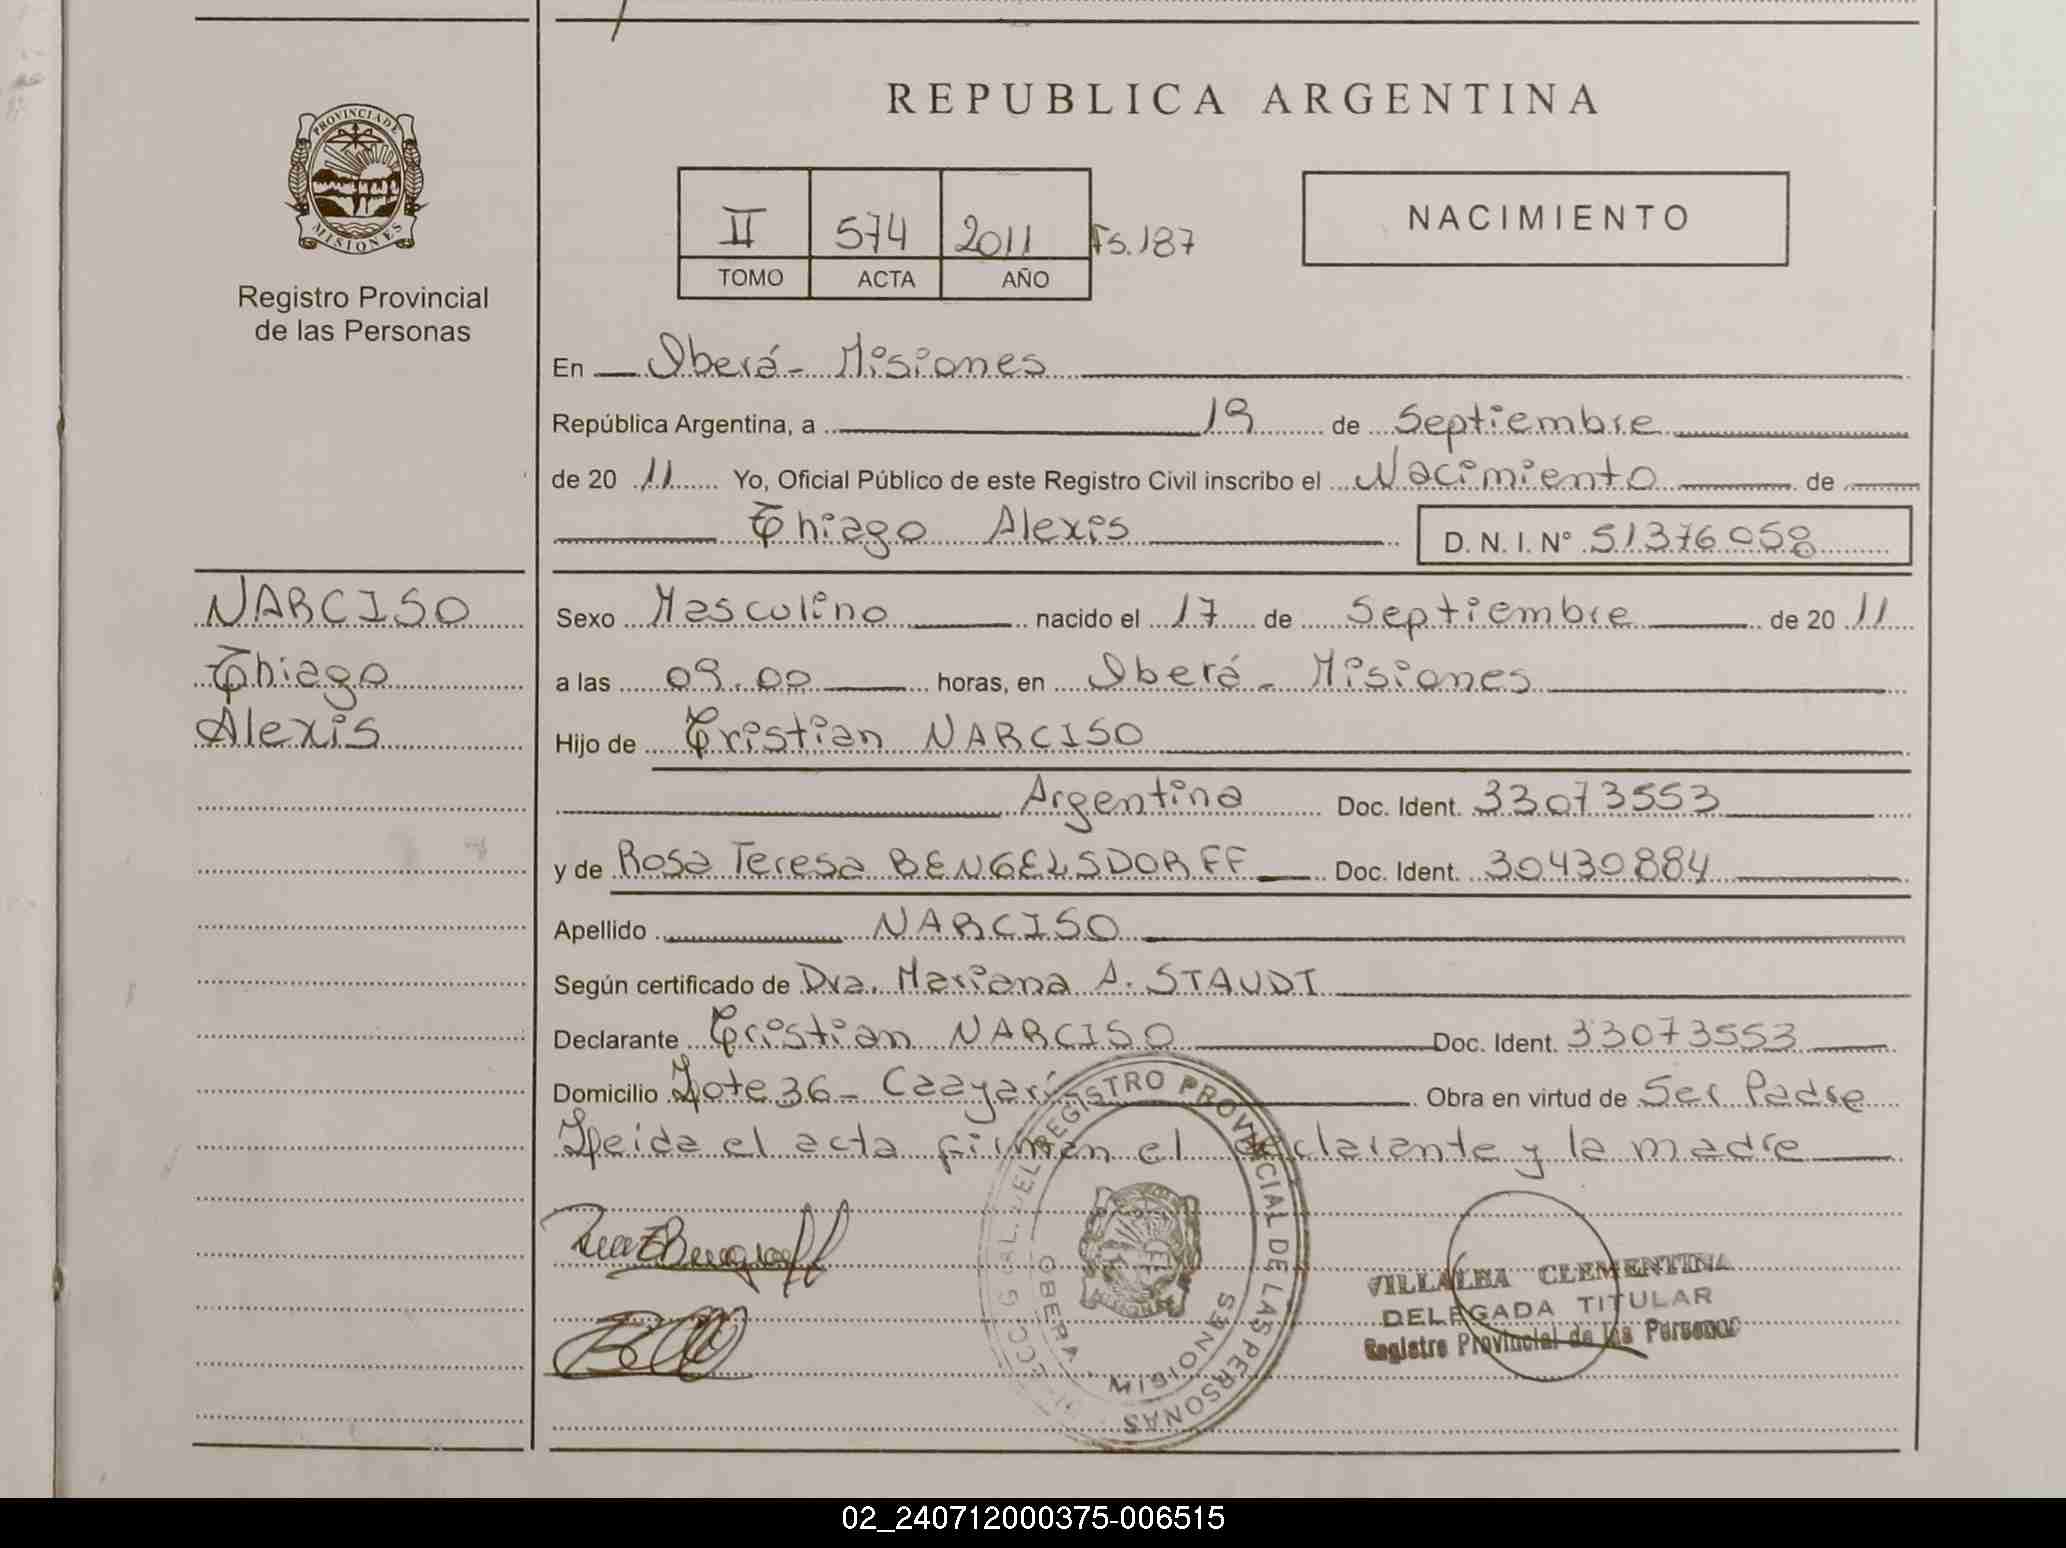 REPUBLICA ARGENTINA
PROVINCIA DE
MISIONES
Registro Provincial
de las Personas
II 574 2011 Fs. 187
TOMO ACTA AÑO
NACIMIENTO
En Oberá - Misiones
República Argentina, a 19 de Septiembre
de 20 11 Yo, Oficial Público de este Registro Civil inscribo el Nacimiento de
Thiago Alexis D. N. I. N° 51376058
NARCISO
Thiago
Alexis
Sexo Masculino nacido el 17 de Septiembre de 20 11
a las 09.00 horas, en Oberá - Misiones
Hijo de Cristian NARCISO
Argentina Doc. Ident. 33073553
y de Rosa Teresa BENGELSDORFF Doc. Ident. 30430884
Apellido NARCISO
Según certificado de Dra. Mariana A. STAUDT
Declarante Cristian NARCISO Doc. Ident. 33073553
Domicilio Lote 36 - Caayarí Obra en virtud de Ser Padre
Leida el acta firman el declarante y la madre
GRAL. DEL REGISTRO PROVINCIAL DE LAS PERSONAS
OBERA MISIONES
VILLALBA CLEMENTINA
DELEGADA TITULAR
Registro Provincial de las Personas
02_240712000375-006515